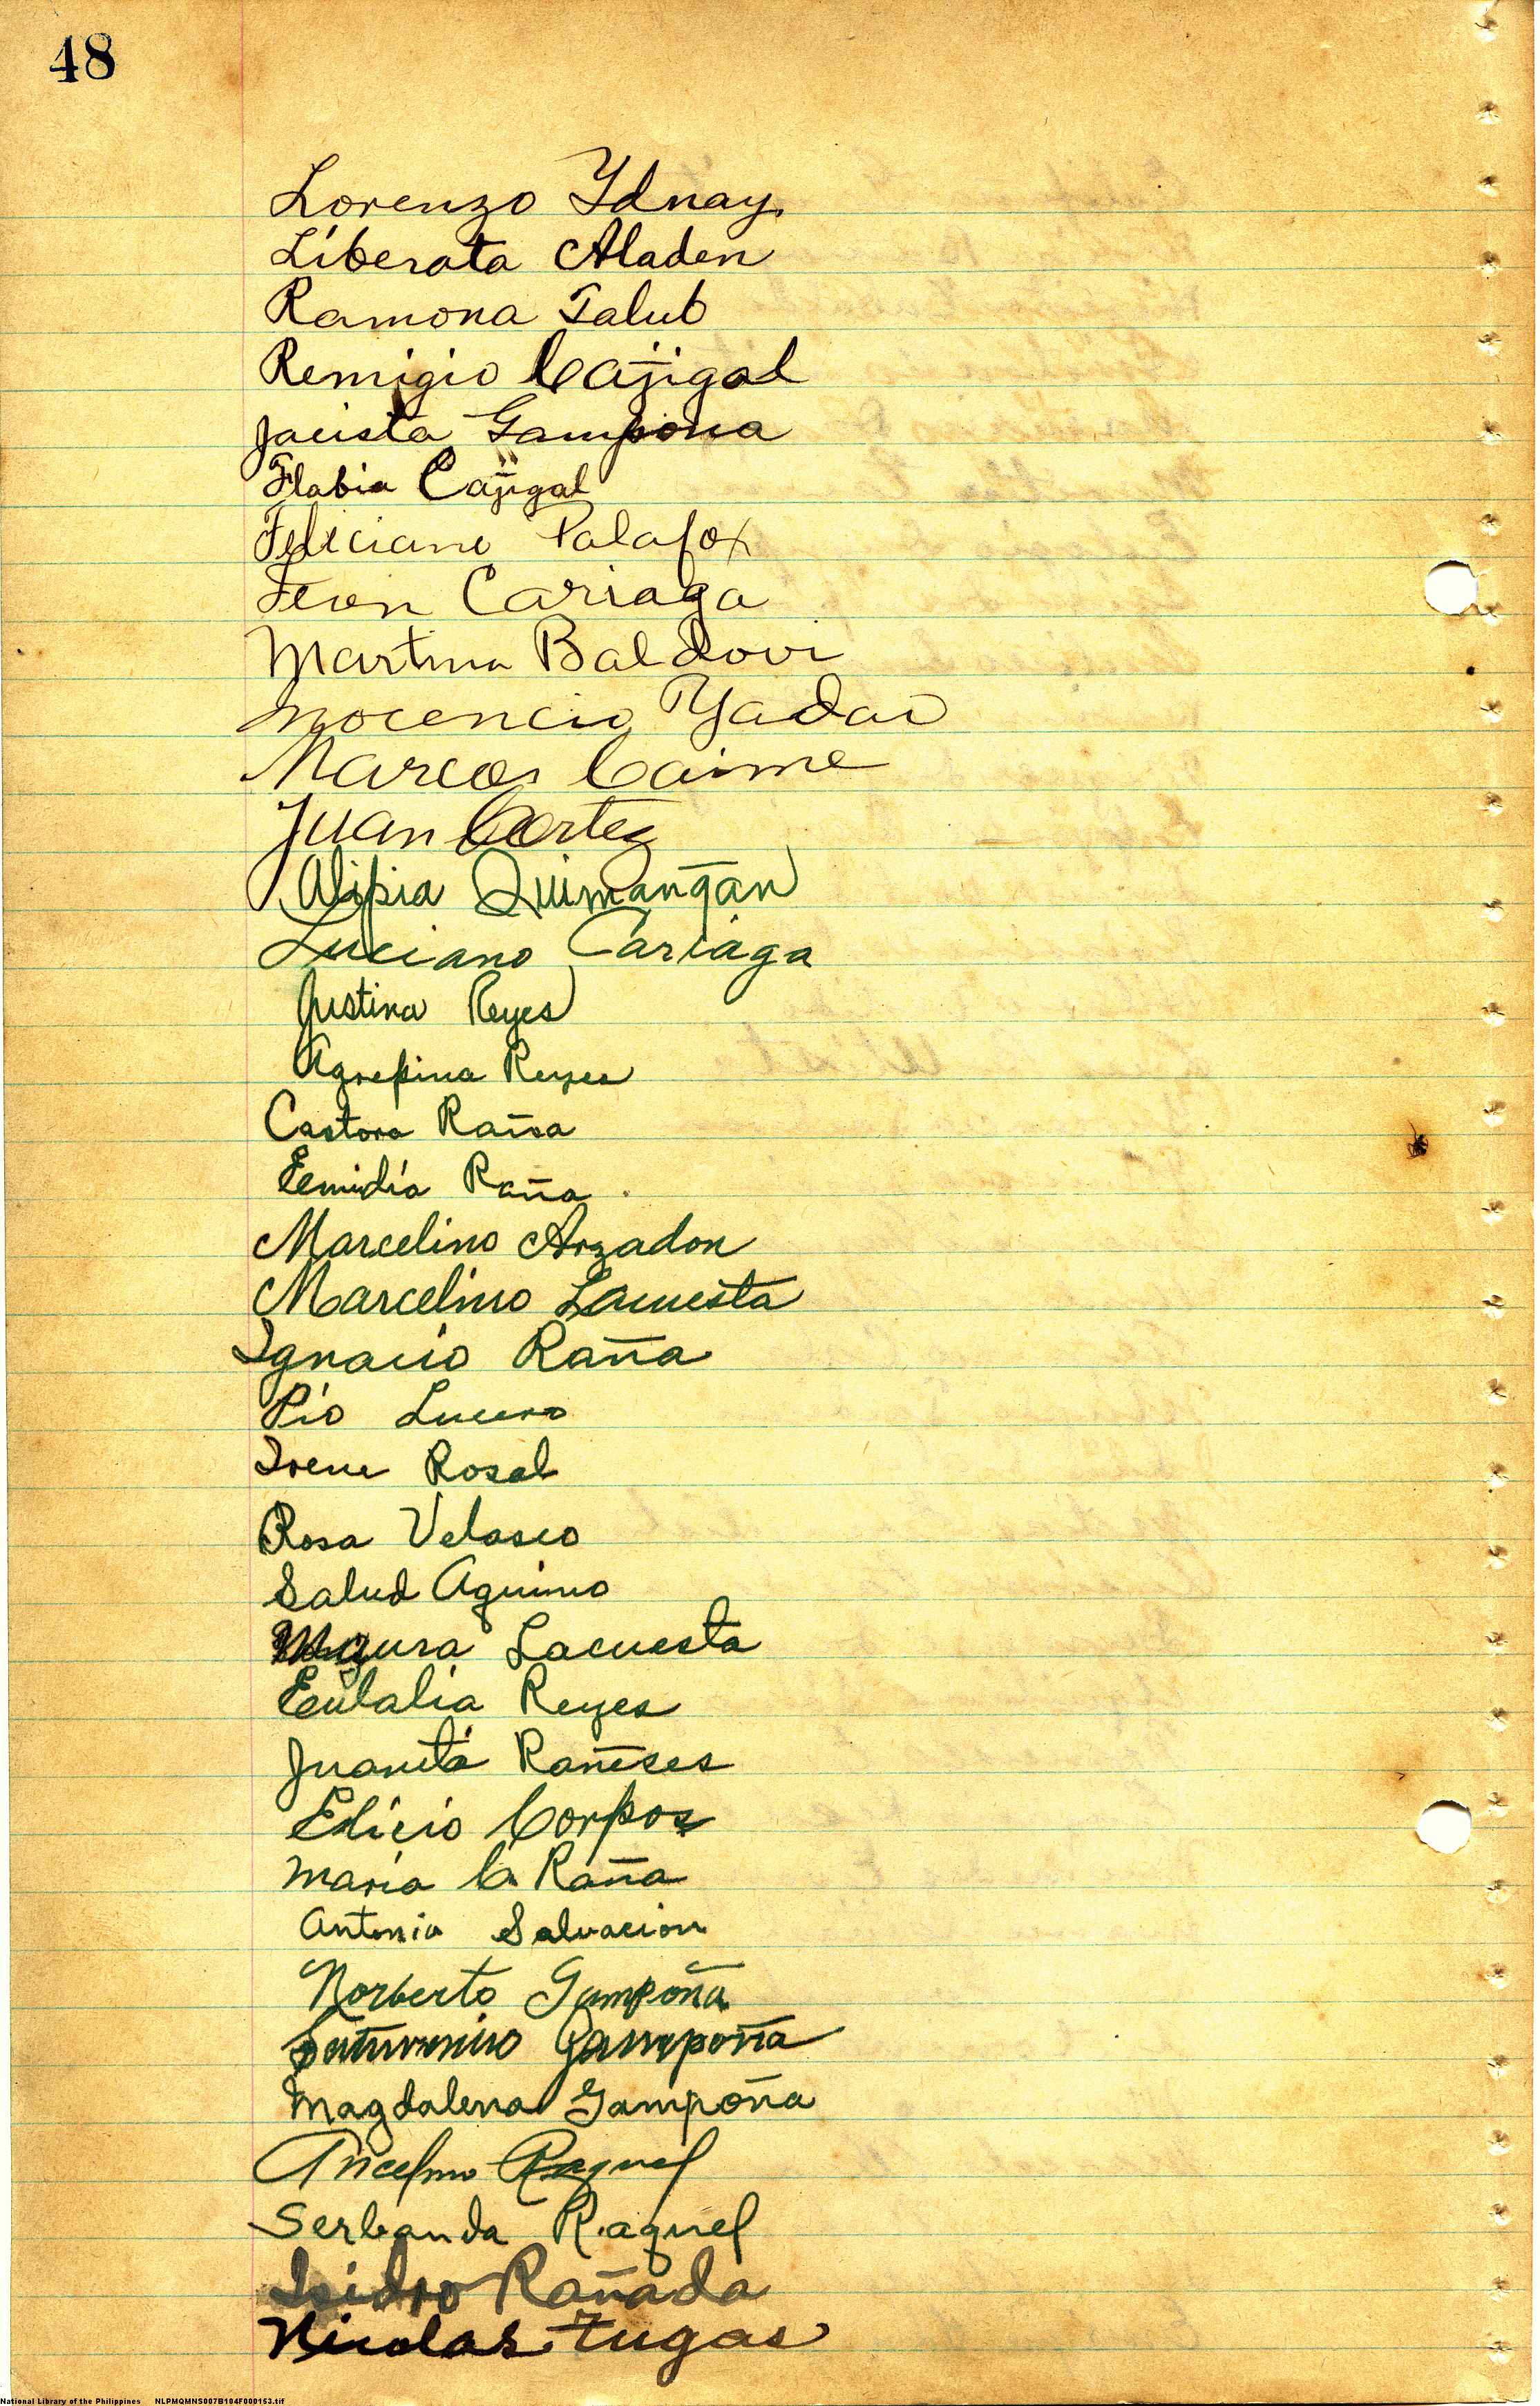 48
Lorenzo Ydnay.
Liberata Aladen
Ramona Talub
Remigio Cajigal
Jacista Gampona
Flabia Cajigal
Feliciano Palafox
Leon Cariaga
Martina Baldovi
Ynocencio Yadao
Marcos Caime
Juan Cortez
Alipia Quimañgan
Luciano Cariaga
Justina Reyes
Agrepina Reyes
Castora Raña
Eemidia Raña
Marcelino Arzadon
Marcelino Lacuesta
Ignacio Raña
Pio Lucero
Irene Rosal
Rosa Velasco
Salud Aquino
Lacuesta
Eulalia Reyes
Juanita Rañeses
Edicio Corpos
Maria C. Raña
Antonia Salvacion
Norberto Gampoña
Saturnino Gampoña
Magdalena Gampoña
Ancelmo Raquel
Serbanda Raquel
Isidro Rañada
Nicolas Tugas
National Library of the Philippines NLPMQMNS007B104F000153.tif